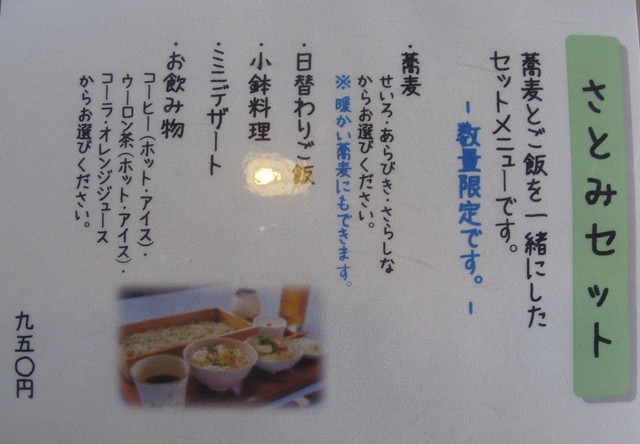 さとみセット
蕎麦とご飯を一緒にした
セットメニューです。
－数量限定です。－
・蕎麦
せいろ・あらびき・さらしな
からお選びください。
※暖かい蕎麦にもできます。
・日替わりご飯
・小鉢料理
・ミニデザート
・お飲み物
コーヒー（ホット・アイス）・
ウーロン茶（ホット・アイス）・
コーラ・オレンジジュース
からお選びください。
九五〇円